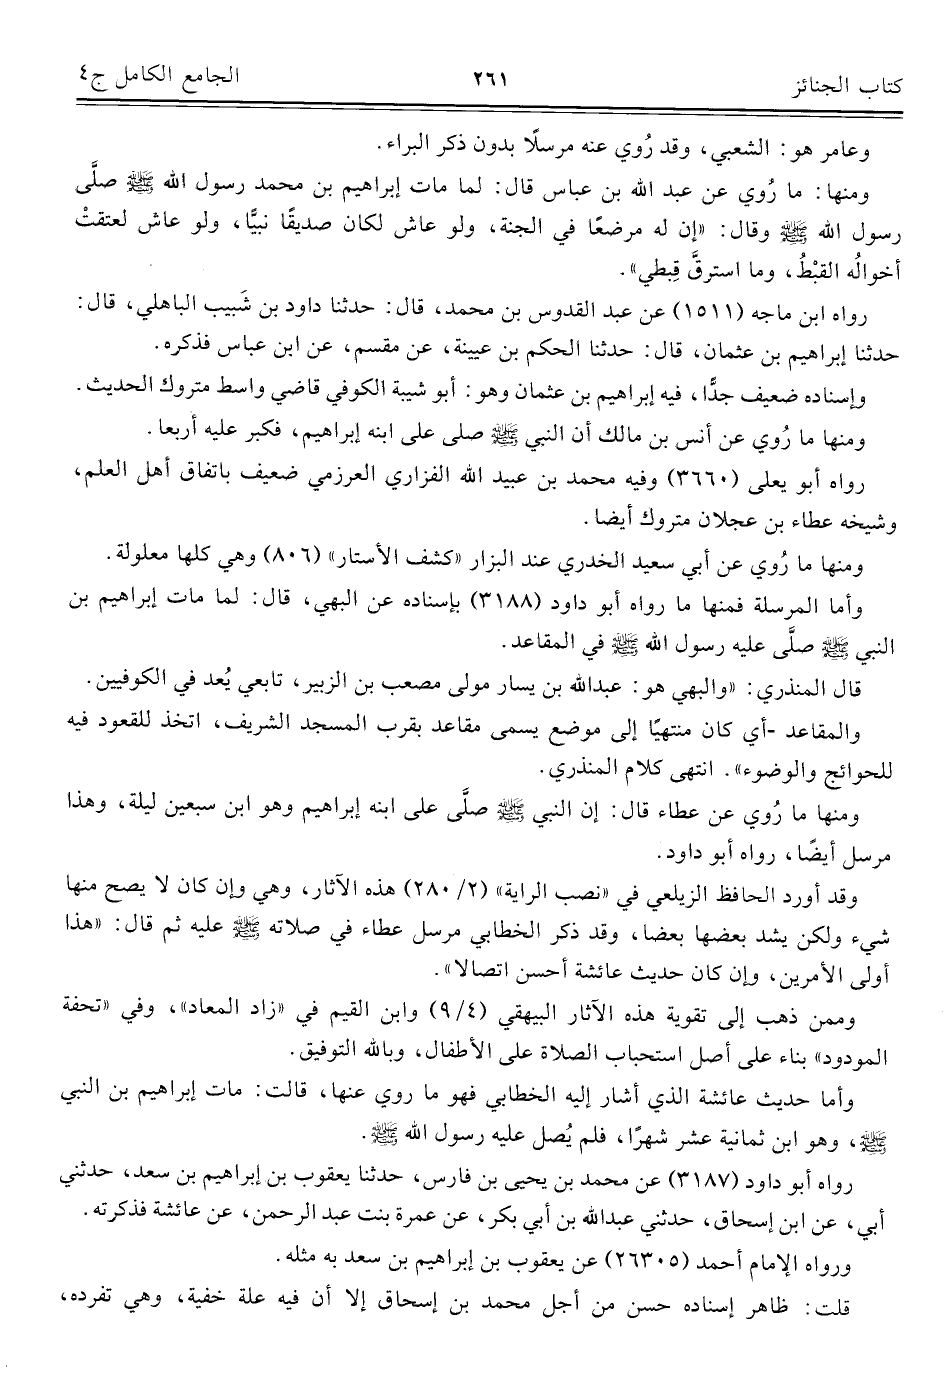 كتاب الجنائز ٢٦١ الجامع الكامل ج٤
وعامر هو: الشعبي، وقد رُوي عنه مرسلًا بدون ذكر البراء.
ومنها: ما رُوي عن عبد الله بن عباس قال: لما مات إبراهيم بن محمد رسول الله ﷺ صلَّى
رسول الله ﷺ وقال: «إن له مرضعًا في الجنة، ولو عاش لكان صديقًا نبيًّا، ولو عاش لعتقتْ
أخوالُه القبْطُ، وما استرقَّ قِبطي».
رواه ابن ماجه (١٥١١) عن عبد القدوس بن محمد، قال: حدثنا داود بن شَبيب الباهلي، قال:
حدثنا إبراهيم بن عثمان، قال: حدثنا الحكم بن عيينة، عن مقسم، عن ابن عباس فذكره.
وإسناده ضعيف جدًّا، فيه إبراهيم بن عثمان وهو: أبو شيبة الكوفي قاضي واسط متروك الحديث.
ومنها ما رُوي عن أنس بن مالك أن النبي ﷺ صلى على ابنه إبراهيم، فكبر عليه أربعا.
رواه أبو يعلى (٣٦٦٠) وفيه محمد بن عبيد الله الفزاري العرزمي ضعيف باتفاق أهل العلم،
وشيخه عطاء بن عجلان متروك أيضا.
ومنها ما رُوي عن أبي سعيد الخدري عند البزار «كشف الأستار» (٨٠٦) وهي كلها معلولة.
وأما المرسلة فمنها ما رواه أبو داود (٣١٨٨) بإسناده عن البهي، قال: لما مات إبراهيم بن
النبي ﷺ صلَّى عليه رسول الله ﷺ في المقاعد.
قال المنذري: «والبهي هو: عبدالله بن يسار مولى مصعب بن الزبير، تابعي يُعد في الكوفيين.
والمقاعد -أي كان منتهيًا إلى موضع يسمى مقاعد بقرب المسجد الشريف، اتخذ للقعود فيه
للحوائج والوضوء». انتهى كلام المنذري.
ومنها ما رُوي عن عطاء قال: إن النبي ﷺ صلَّى على ابنه إبراهيم وهو ابن سبعين ليلة، وهذا
مرسل أيضًا، رواه أبو داود.
وقد أورد الحافظ الزيلعي في «نصب الراية» (٢/ ٢٨٠) هذه الآثار، وهي وإن كان لا يصح منها
شيء ولكن يشد بعضها بعضا، وقد ذكر الخطابي مرسل عطاء في صلاته ﷺ عليه ثم قال: «هذا
أولى الأمرين، وإن كان حديث عائشة أحسن اتصالا».
وممن ذهب إلى تقوية هذه الآثار البيهقي (٤/ ٩) وابن القيم في «زاد المعاد»، وفي «تحفة
المودود» بناء على أصل استحباب الصلاة على الأطفال، وبالله التوفيق.
وأما حديث عائشة الذي أشار إليه الخطابي فهو ما روي عنها، قالت: مات إبراهيم بن النبي
ﷺ، وهو ابن ثمانية عشر شهرًا، فلم يُصل عليه رسول الله ﷺ.
رواه أبو داود (٣١٨٧) عن محمد بن يحيى بن فارس، حدثنا يعقوب بن إبراهيم بن سعد، حدثني
أبي، عن ابن إسحاق، حدثني عبدالله بن أبي بكر، عن عمرة بنت عبد الرحمن، عن عائشة فذكرته.
ورواه الإمام أحمد (٢٦٣٠٥) عن يعقوب بن إبراهيم بن سعد به مثله.
قلت: ظاهر إسناده حسن من أجل محمد بن إسحاق إلا أن فيه علة خفية، وهي تفرده،